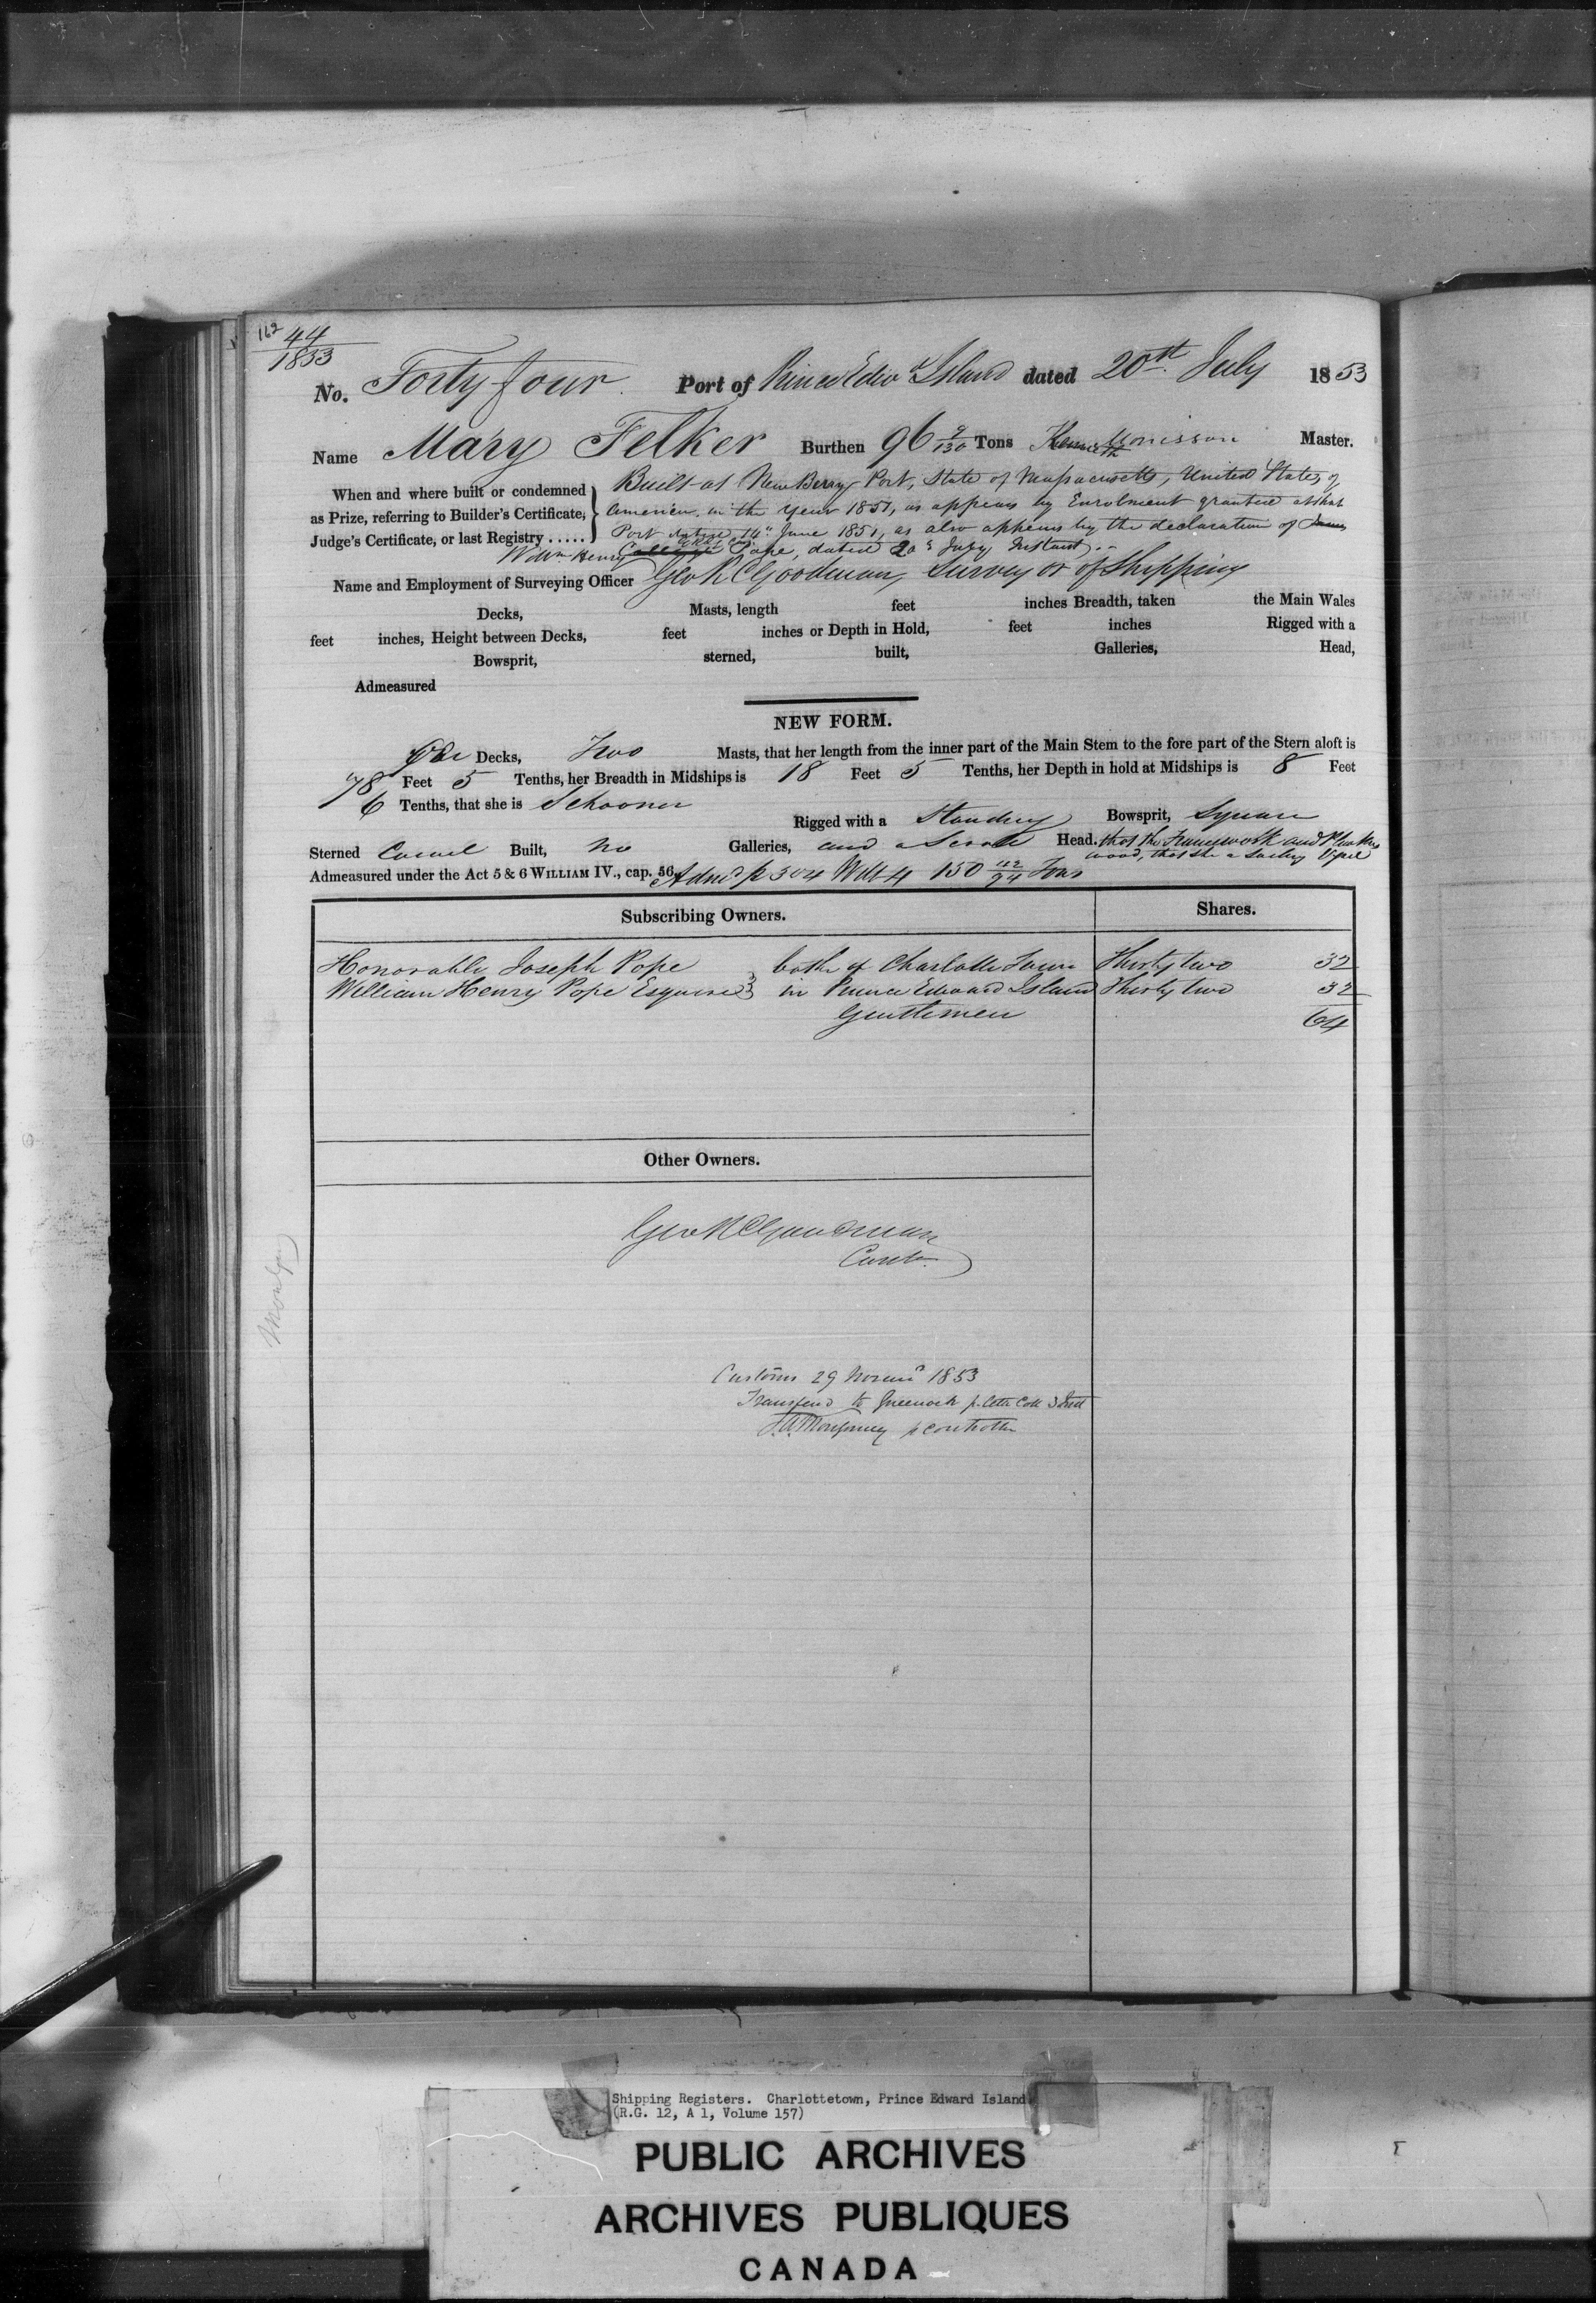 162 44
1853
No. Forty four Port of Prince Edwd Island dated 20th July 1853
Name Mary Felker Burthen 96 9/130 Tons Kenneth Morisson Master.
When and where built or condemned as Prize, referring to Builder's Certificate, Judge's Certificate, or last Registry .....
Built at NewBerry Port, State of Massacusetts, United States of
America, in the Year 1851, as appears by Enrolment granted at that
Port dated 14th June 1851, as also appears by the declaration of
Willm Henry Pope, dated 20th July Instant.
Name and Employment of Surveying Officer Geo R C Goodman, Surveyor of Shipping
Decks, Masts, length feet inches Breadth, taken the Main Wales
feet inches, Height between Decks, feet inches or Depth in Hold, feet inches Rigged with a
Bowsprit, sterned, built, Galleries, Head,
Admeasured
NEW FORM.
One Decks, Two Masts, that her length from the inner part of the Main Stem to the fore part of the Stern aloft is
78 Feet 5 Tenths, her Breadth in Midships is 18 Feet 5 Tenths, her Depth in hold at Midships is 8 Feet
6 Tenths, that she is Schooner Rigged with a Standing Bowsprit, Square
Sterned Carvel Built, No Galleries, and a Scroll Head. that the Framework and Planking
wood, that she a Sailing Vessel
Admeasured under the Act 5 & 6 WILLIAM IV., cap. 56. Admd p 3 & 4 Will 4 150 Tons
Subscribing Owners. Shares.
Honorable Joseph Pope both of Charlotte Town Thirty two 32
William Henry Pope Esquire in Prince Edward Island Thirty two 32
Gentlemen 64
Other Owners.
Geo R C Goodman
Contr
Customs 29 Novemr 1853
Transferd to Greenock p. Lettr Coll
Montgomery p Controller
Shipping Registers. Charlottetown, Prince Edward Island
(R.G. 12, A 1, Volume 157)
PUBLIC ARCHIVES
ARCHIVES PUBLIQUES
CANADA